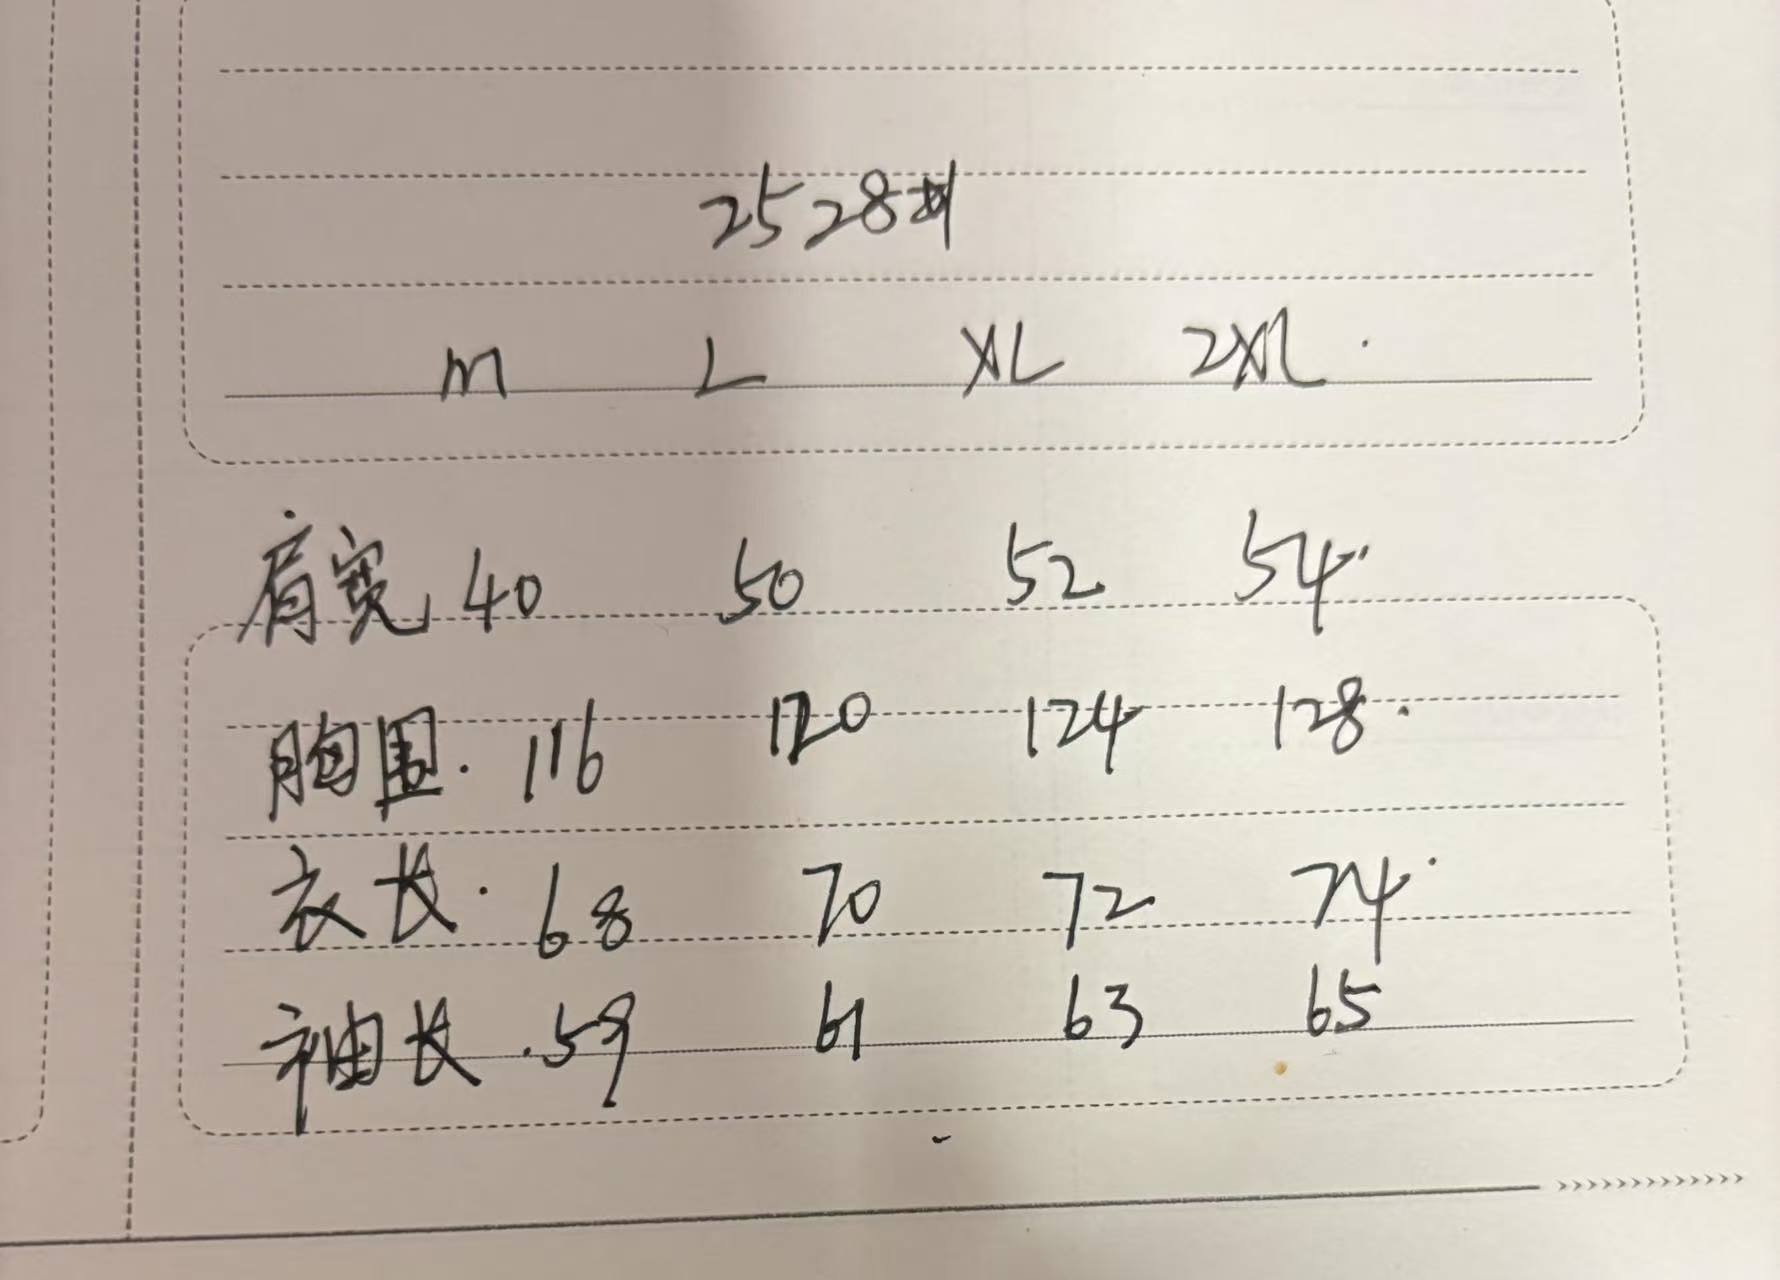 2528#
M L XL 2XL.
肩宽 40 50 52 54.
胸围. 116 120 124 128.
衣长. 68 70 72 74.
袖长. 59 61 63 65